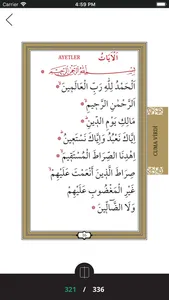 Carrier 4:59 PM
AYETLER اَلْاٰيَاتُ
بِسْمِ اللّٰهِ الرَّحْمٰنِ الرَّحِيمِ
اَلْحَمْدُ لِلّٰهِ رَبِّ الْعَالَمِينَ
اَلرَّحْمٰنِ الرَّحِيمِ
مَالِكِ يَوْمِ الدِّينِ
اِيَّاكَ نَعْبُدُ وَاِيَّاكَ نَسْتَعِينُ
اِهْدِنَا الصِّرَاطَ الْمُسْتَقِيمَ
صِرَاطَ الَّذِينَ اَنْعَمْتَ عَلَيْهِمْ
غَيْرِ الْمَغْضُوبِ عَلَيْهِمْ
وَلَا الضَّالِّينَ
CUMA VİRDİ
321 / 336